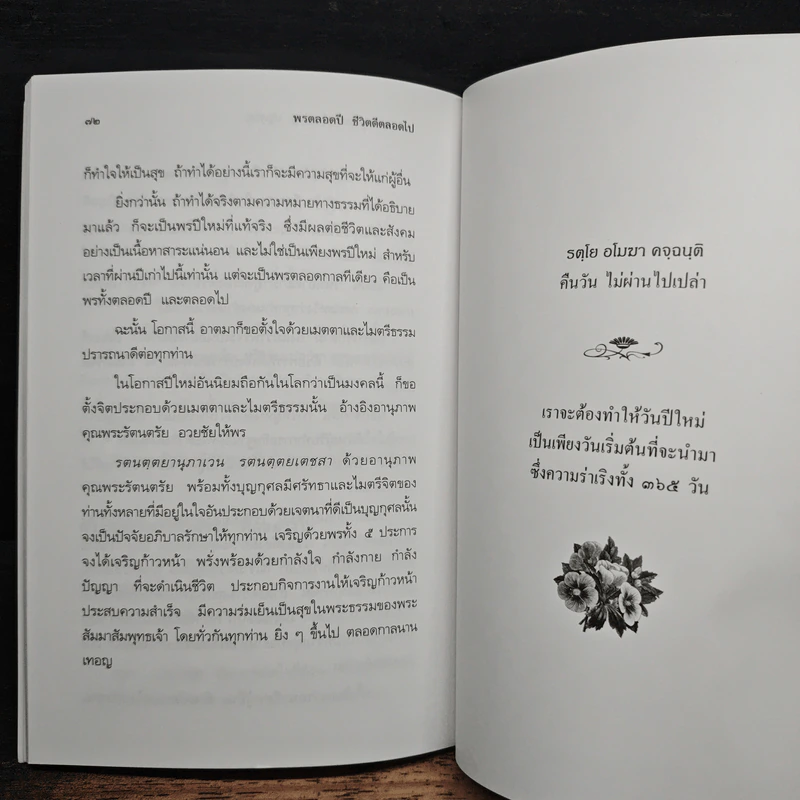 ๗๒ พรตลอดปี ชีวิตดีตลอดไป
ก็ทำใจให้เป็นสุข ถ้าทำได้อย่างนี้เราก็จะมีความสุขที่จะให้แก่ผู้อื่น
ยิ่งกว่านั้น ถ้าทำได้จริงตามความหมายทางธรรมที่ได้อธิบาย
มาแล้ว ก็จะเป็นพรปีใหม่ที่แท้จริง ซึ่งมีผลต่อชีวิตและสังคม
อย่างเป็นเนื้อหาสาระแน่นอน และไม่ใช่เป็นเพียงพรปีใหม่ สำหรับ
เวลาที่ผ่านปีเก่าไปนี้เท่านั้น แต่จะเป็นพรตลอดกาลทีเดียว คือเป็น
พรทั้งตลอดปี และตลอดไป
ฉะนั้น โอกาสนี้ อาตมาก็ขอตั้งใจด้วยเมตตาและไมตรีธรรม
ปรารถนาดีต่อทุกท่าน
ในโอกาสปีใหม่อันนิยมถือกันในโลกว่าเป็นมงคลนี้ ก็ขอ
ตั้งจิตประกอบด้วยเมตตาและไมตรีธรรมนั้น อ้างอิงอานุภาพ
คุณพระรัตนตรัย อวยชัยให้พร
รตนตฺตยานุภาเวน รตนตฺตยเตชสา ด้วยอานุภาพ
คุณพระรัตนตรัย พร้อมทั้งบุญกุศลมีศรัทธาและไมตรีจิตของ
ท่านทั้งหลายที่มีอยู่ในใจอันประกอบด้วยเจตนาที่ดีเป็นบุญกุศลนั้น
จงเป็นปัจจัยอภิบาลรักษาให้ทุกท่าน เจริญด้วยพรทั้ง ๕ ประการ
จงได้เจริญก้าวหน้า พรั่งพร้อมด้วยกำลังใจ กำลังกาย กำลัง
ปัญญา ที่จะดำเนินชีวิต ประกอบกิจการงานให้เจริญก้าวหน้า
ประสบความสำเร็จ มีความร่มเย็นเป็นสุขในพระธรรมของพระ
สัมมาสัมพุทธเจ้า โดยทั่วกันทุกท่าน ยิ่ง ๆ ขึ้นไป ตลอดกาลนาน
เทอญ
รตฺโย อโมฆา คจฺฉนฺติ
คืนวัน ไม่ผ่านไปเปล่า
เราจะต้องทำให้วันปีใหม่
เป็นเพียงวันเริ่มต้นที่จะนำมา
ซึ่งความร่าเริงทั้ง ๓๖๕ วัน